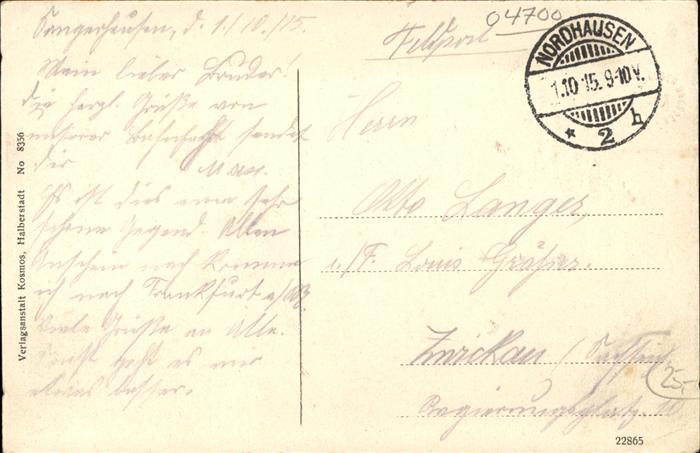 Sangerhausen, d. 1./10./15.
Mein lieber Bruder!
die herzl. Grüße von
unserer Bahnfahrt sendet
dir Max.
Es ist dies eine sehr
schöne Gegend. Allen
Anschein nach komme
ich nach Frankfurt a/M.
Viele Grüße an Alle.
Sonst geht es mir
etwas besser.
Verlagsanstalt Kosmos, Halberstadt No 8356
04700
Feldpost
NORDHAUSEN
1.10.15. 9-10V.
* 2 h
Herrn
Otto Langer,
i./F. Louis Gräser.
Zwickau / Sachsen
25.-
Regierungsplatz 10
22865